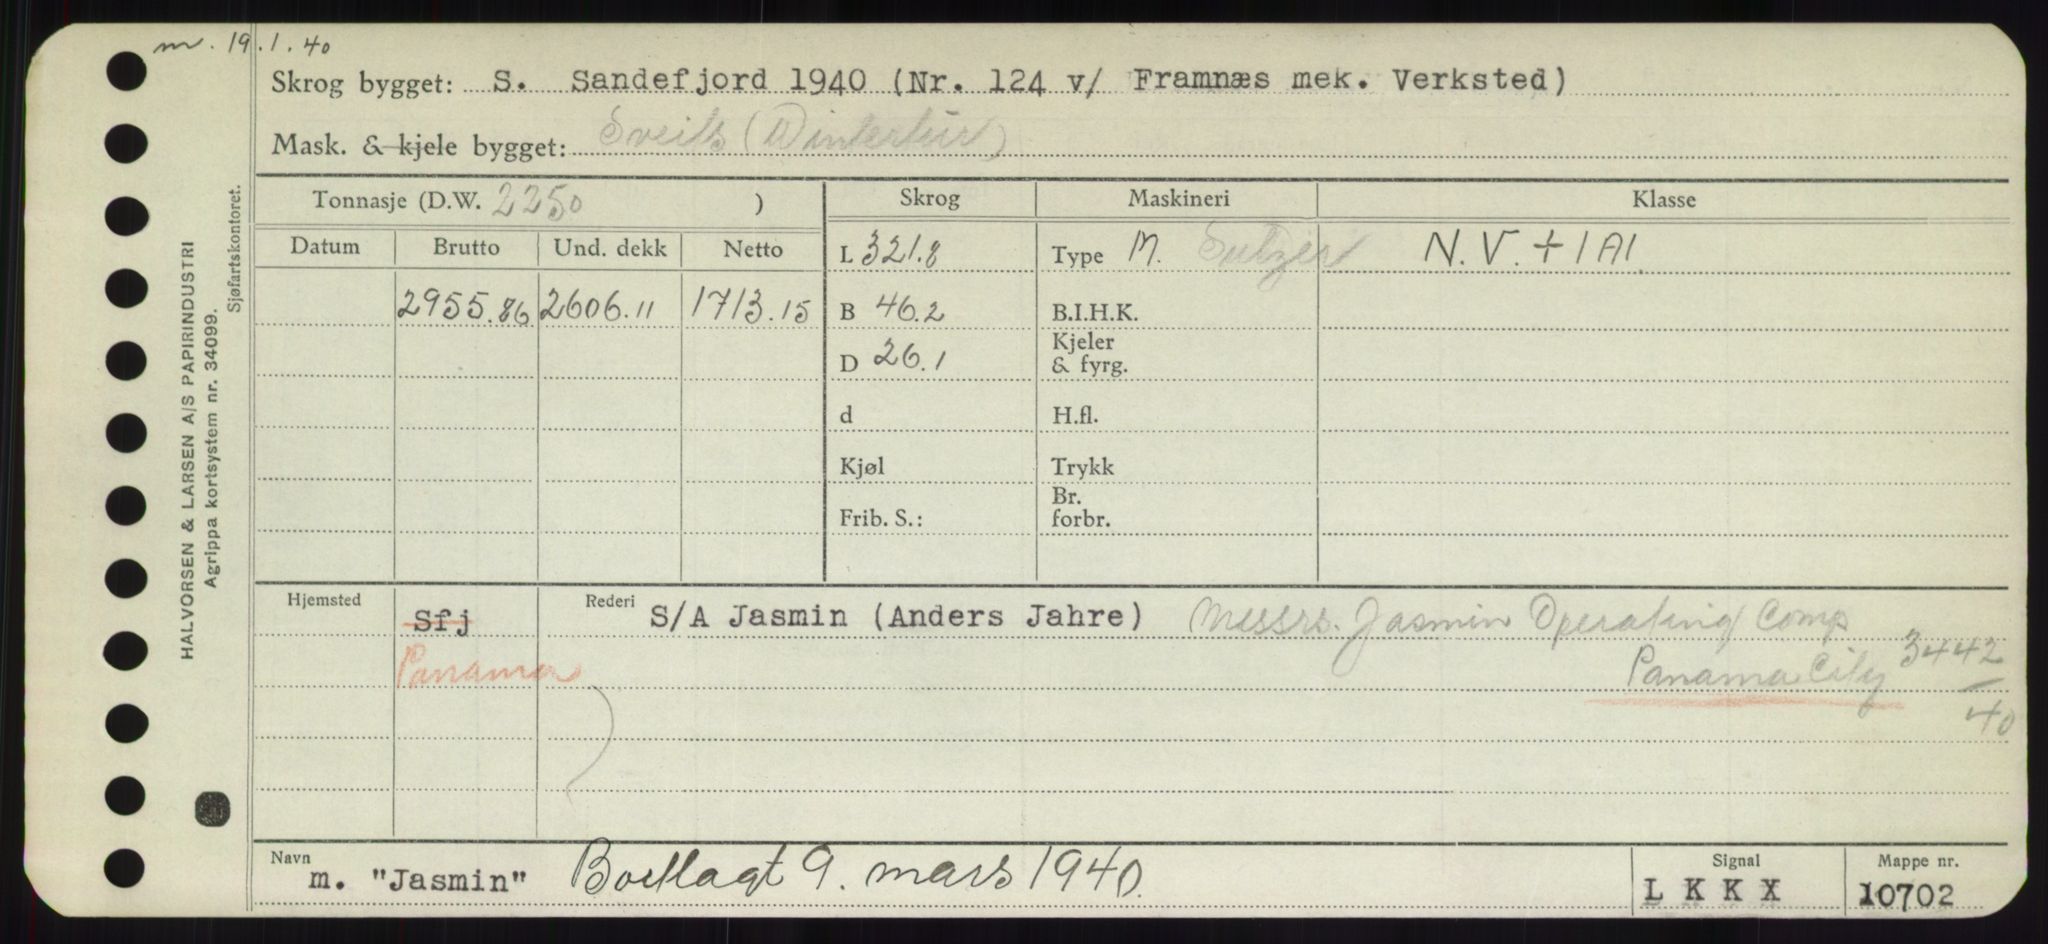 m. 19.1.40
Skrog bygget: S. Sandefjord 1940 (Nr. 124 v/ Framnæs mek. Verksted)
Mask. & kjele bygget: Sveits (Winterthur)
Tonnasje (D.W. 2250 ) Skrog Maskineri Klasse
Datum Brutto Und. dekk Netto L 321.8 Type M. Sulzer N.V. + 1A1.
2955.86 2606.11 1713.15 B 46.2 B.I.H.K.
D 26.1 Kjeler & fyrg.
d H.fl.
Kjøl Trykk
Frib. S.: Br. forbr.
Hjemsted Sfj Rederi S/A Jasmin (Anders Jahre) Messrs. Jasmin Operating Comp
Panama Panama City 3442
40
Navn m. "Jasmin" Bortlagt 9. mars 1940. Signal LKKX Mappe nr. 10702
HALVORSEN & LARSEN A/S PAPIRINDUSTRI
Agrippa kortsystem nr. 34099.
Sjøfartskontoret.